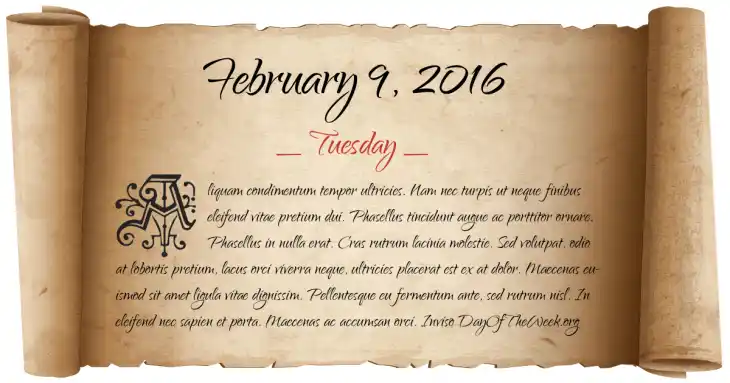 February 9, 2016
_ Tuesday _
Aliquam condimentum tempor ultricies. Nam nec turpis ut neque finibus
eleifend vitae pretium dui. Phasellus tincidunt augue ac porttitor ornare.
Phasellus in nulla erat. Cras rutrum lacinia molestie. Sed volutpat, odio
at lobortis pretium, lacus orci viverra neque, ultricies placerat est ex at dolor. Maecenas eu-
ismod sit amet ligula vitae dignissim. Pellentesque eu fermentum ante, sed rutrum nisl. In
eleifend nec sapien et porta. Maecenas ac accumsan orci. Inviso DayOfTheWeek.org